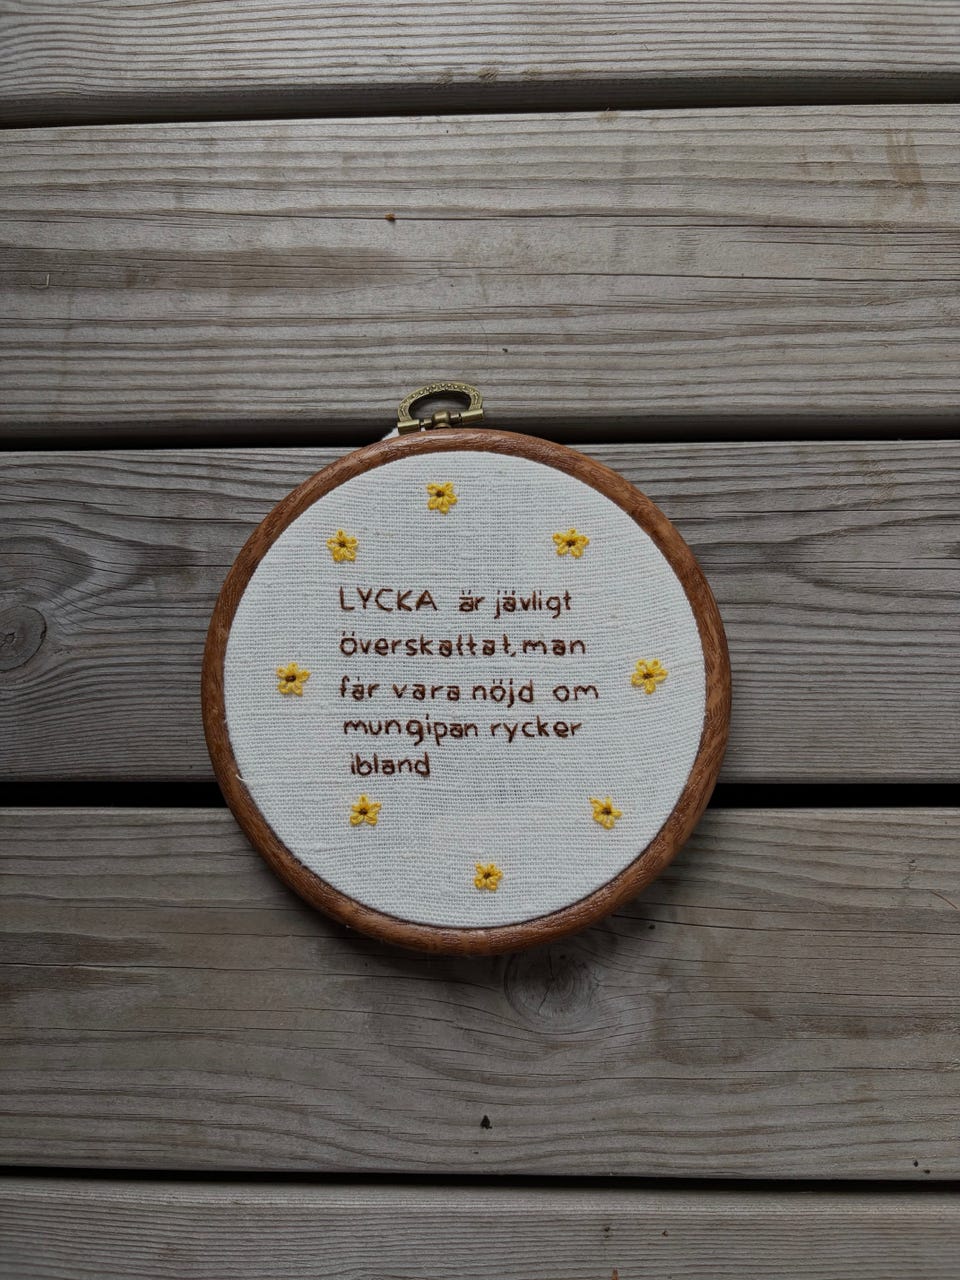 LYCKA är jävligt
överskattat, man
får vara nöjd om
mungipan rycker
ibland